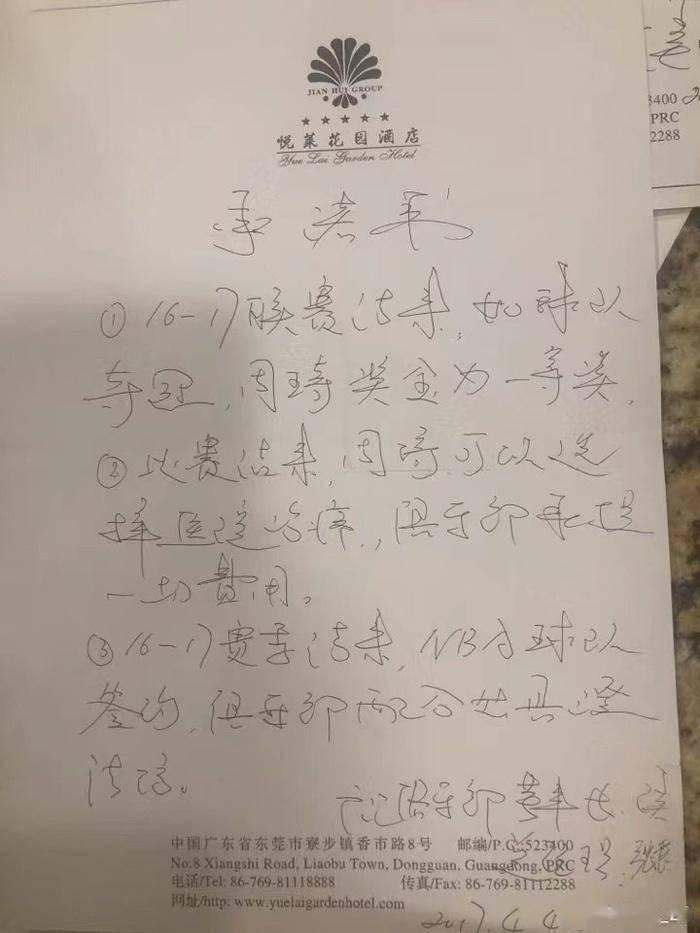 JIAN HUI GROUP
★★★★★
悦莱花园酒店
Yue Lai Garden Hotel
承诺书
① 16-17联赛结束,如球队
夺冠,周琦奖金为一等奖,
② 比赛结束,周琦可以选
择医院治疗,俱乐部承担
一切费用。
③ 16-17赛季结束,NBA球队
签约,俱乐部配合出具澄
清信。
俱乐部董事长
中国广东省东莞市寮步镇香市路8号 邮编/P.C:523400
No.8 Xiangshi Road, Liaobu Town, Dongguan. Guangdong, PRC
电话/Tel: 86-769-81118888 传真/Fax: 86-769-81112288
网址/http: www.yuelaigardenhotel.com
2017.4.4
3400
PRC
2288